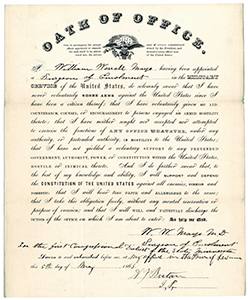 OATH OF OFFICE.
I William Worrell Mayo, having been appointed
a Surgeon of Enrolment in the MILITARY
SERVICE of the United States, do solemnly swear that I have
never voluntarily BORNE ARMS against the United States since I
have been a citizen thereof; that I have voluntarily given no AID,
COUNTENANCE, COUNSEL, or ENCOURAGEMENT to persons engaged in ARMED HOSTILITY
thereto; that I have neither sought nor accepted nor attempted
to exercise the functions of ANY OFFICE WHATEVER, under any
authority, or pretended authority, in HOSTILITY to the United States; that
I have not yielded a voluntary support to any PRETENDED
GOVERNMENT, AUTHORITY, POWER, or CONSTITUTION within the United States,
HOSTILE or INIMICAL thereto. And I do further swear that, to
the best of my knowledge and ability, I will SUPPORT and DEFEND
the CONSTITUTION OF THE UNITED STATES against all enemies, FOREIGN and
DOMESTIC; that I will bear true FAITH and ALLEGIANCE to the same;
that I take this obligation freely, without any mental reservation or
purpose of evasion; and that I will well and FAITHFULLY discharge the
duties of the office on which I am about to enter: So help me God.
W. W. Mayo M.D
Surgeon of Enrolment
For the first Congressional District
Sworn to and subscribed before me, at my office
this 5th day of May